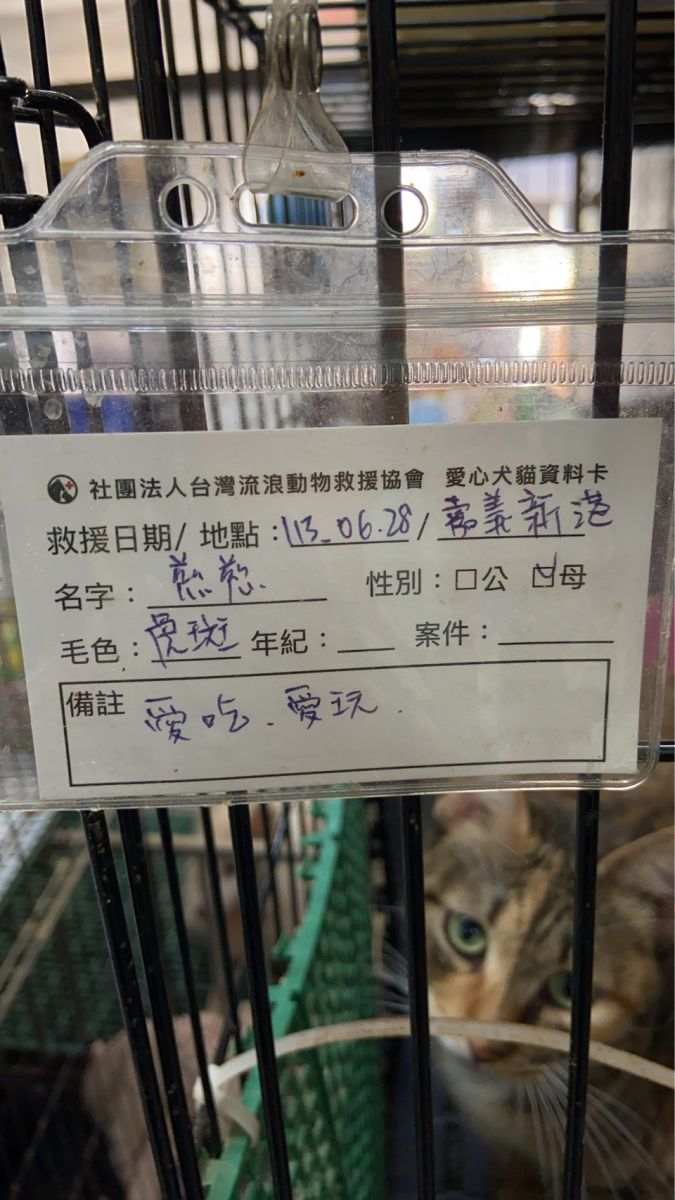 社團法人台灣流浪動物救援協會 愛心犬貓資料卡
救援日期/ 地點：113.06.28 / 嘉義新港
名字： 性別：☐公 ☑母
毛色：虎斑 年紀： 案件：
備註 愛吃、愛玩.